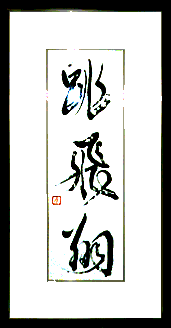 跳飛翔